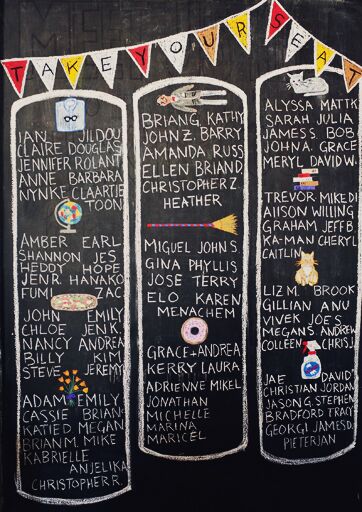 TAKE YOUR SEAT
IAN JILDOU
CLAIRE DOUGLAS
JENNIFER ROLANT
ANNE BARBARA
NYNKE CLAARTJE
TOON
AMBER EARL
SHANNON JES
HEDDY HOPE
JEN R. HANAKO
FUMI ZAC
JOHN EMILY
CHLOE JEN K.
NANCY ANDREA
BILLY KIM
STEVE JEREMY
ADAM EMILY
CASSIE BRIAN
KATIE D. MEGAN
BRIAN M. MIKE
KABRIELLE
ANJELIKA
CHRISTOPHER R.
BRIAN G. KATHY
JOHN Z. BARRY
AMANDA RUSS
ELLEN BRIAN D
CHRISTOPHER Z.
HEATHER
MIGUEL JOHN S.
GINA PHYLLIS
JOSE TERRY
ELO KAREN
MENACHEM
GRACE + ANDREA
KERRY LAURA
ADRIENNE MIKEL
JONATHAN
MICHELLE
MARINA
MARICEL
ALYSSA MATT K
SARAH JULIA
JAMES S. BOB
JOHN A. GRACE
MERYL DAVID W.
TREVOR MIKE D.
ALISON WILLING
GRAHAM JEFF B.
KA-MAN CHERYL
CAITLIN
LIZ M. BROOK
GILLIAN ANU
VIVEK JOE S.
MEGAN S. ANDREW
COLLEEN CHRIS J.
JAE DAVID
CHRISTIAN JORDAN
JASON G. STEPHEN
BRADFORD TRACY
GEORGI JAMES D.
PIETERJAN